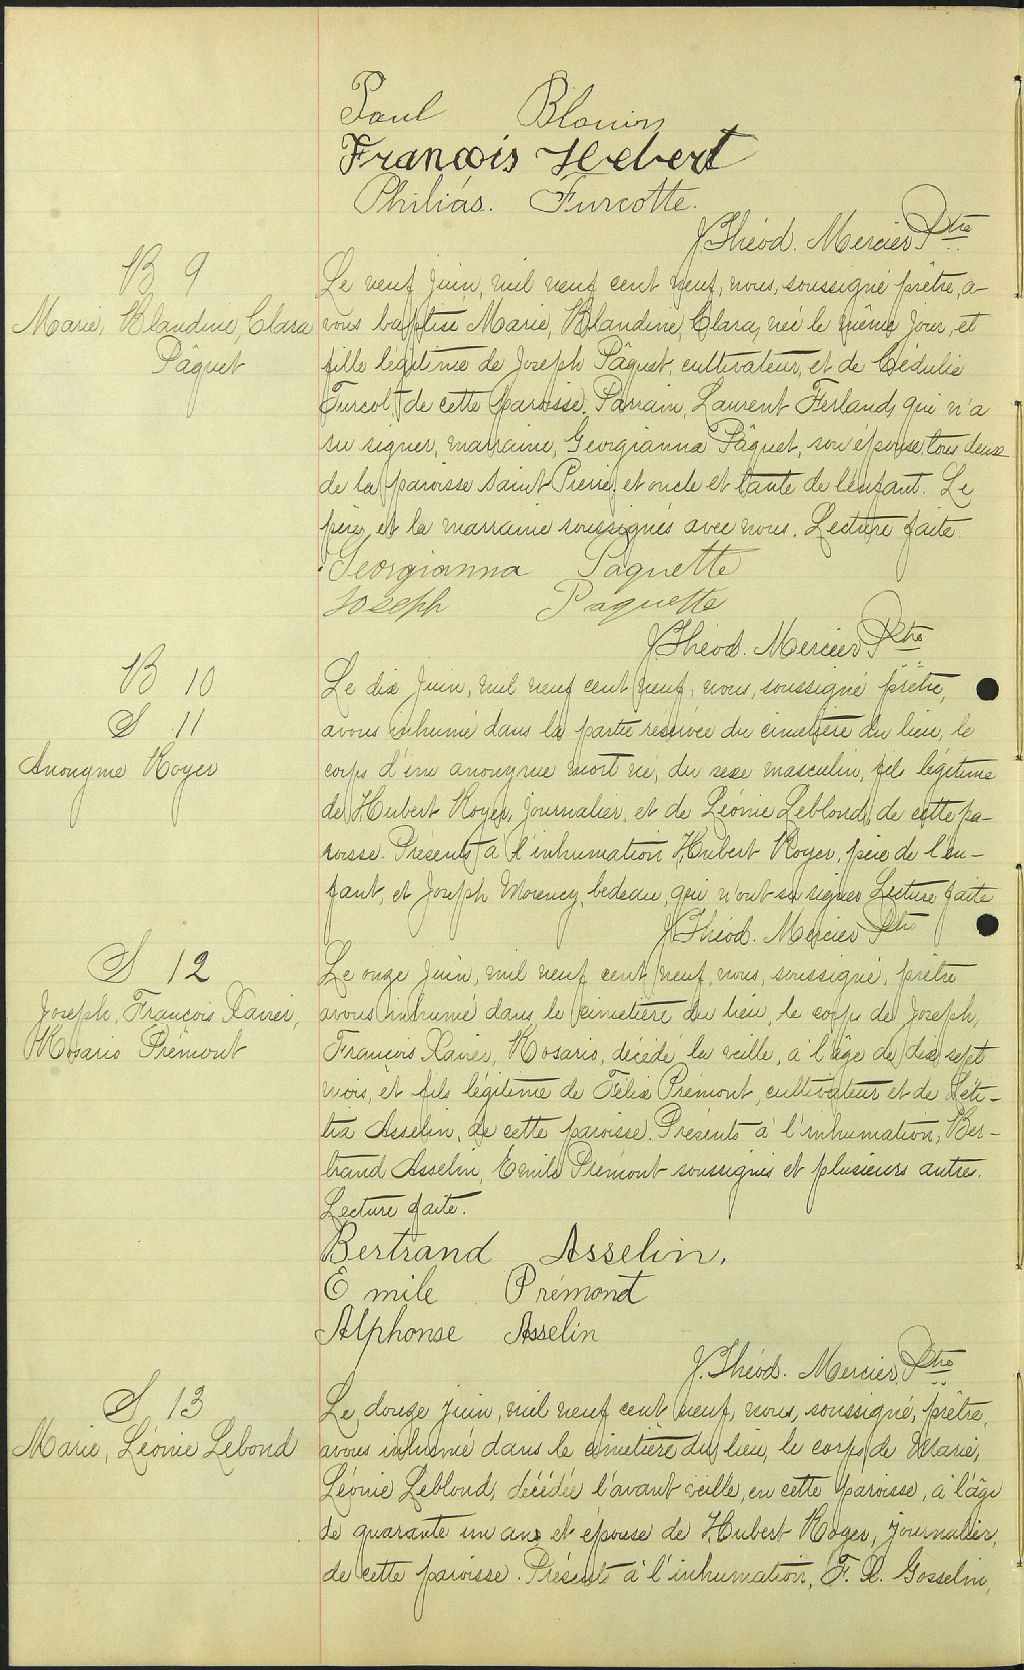 Paul Blouin
François Hebert
Philias. Turcotte.
J. Théod. Mercier Ptre
B 9
Marie, Blandine, Clara
Pâquet
Le neuf Juin, mil neuf cent neuf, nous, soussigné prêtre, a-
vons baptisé Marie, Blandine, Clara, née le même jour, et
fille légitime de Joseph Pâquet, cultivateur, et de Cédulie
Turcot, de cette paroisse. Parrain, Laurent Ferland, qui n'a
su signer, marraine, Georgianna Pâquet, son épouse, tous deux
de la paroisse Saint Pierre, et oncle et tante de l'enfant. Le
père, et la marraine soussignés avec nous. Lecture faite.
Georgianna Paquette
Joseph Paquette
J. Théod. Mercier Ptre
B 10
S 11
Anonyme Royer
Le dix Juin, mil neuf cent neuf, nous, soussigné prêtre,
avons inhumé dans la partie réservée du cimetière du lieu, le
corps d'un anonyme mort né, du sexe masculin, fils légitime
de Hubert Royer, journalier, et de Léonie Leblond, de cette pa-
roisse. Présents à l'inhumation Hubert Royer, père de l'en-
fant, et Joseph Morency, bedeau, qui n'ont su signer Lecture faite
J. Théod. Mercier Ptre
S 12
Joseph, François Xavier,
Rosario Prémont
Le onze Juin, mil neuf cent neuf, nous, soussigné, prêtre
avons inhumé dans le cimetière du lieu, le corps de Joseph,
François Xavier, Rosario, décédé la veille, à l'âge de dix sept
mois, et fils légitime de Félix Prémont, cultivateur et de Léti-
tia Asselin, de cette paroisse. Présents à l'inhumation, Ber-
trand Asselin, Emile Prémont soussignés et plusieurs autres.
Lecture faite.
Bertrand Asselin.
Emile Prémont
Alphonse Asselin
J. Théod. Mercier, Ptre
S 13
Marie, Léonie Lebond
Le, douze Juin, mil neuf cent neuf, nous, soussigné, prêtre,
avons inhumé dans le cimetière du lieu, le corps de Marie,
Léonie Leblond, décédée l'avant veille, en cette paroisse, à l'âge
de quarante un ans et épouse de Hubert Royer, journalier,
de cette paroisse. Présents à l'inhumation, F. X. Gosselin,